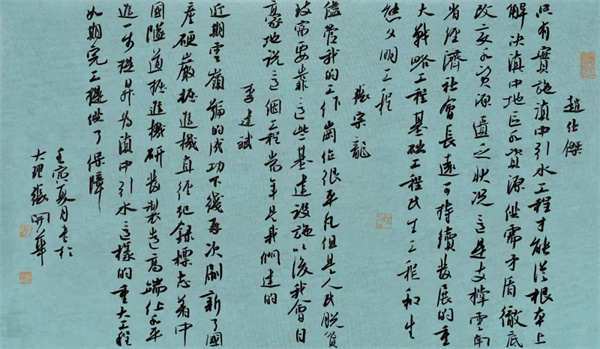 趙仕傑
只有實施滇中引水工程才能從根本上
解決滇中地區水資源供需矛盾徹底
改变水資源匱乏狀況這是支撐雲南
省經濟社會長遠可持續發展的重
大戰略工程基礎工程民生工程和生
態文明工程
張宗龍
儘管我的工作崗位很平凡但是人民脫貧
致富要靠這些基建設施以後我會自
豪地說這個工程當年是我們建的
李建斌
近期雲嶺號的成功下綫再次刷新了國
產硬巖掘進機直徑紀録標志着中
國隧道掘進機研發製造高端化水平
進一步提升為滇中引水這樣的重大工程
如期完工提供了保障
壬寅夏月書於
大理張開華